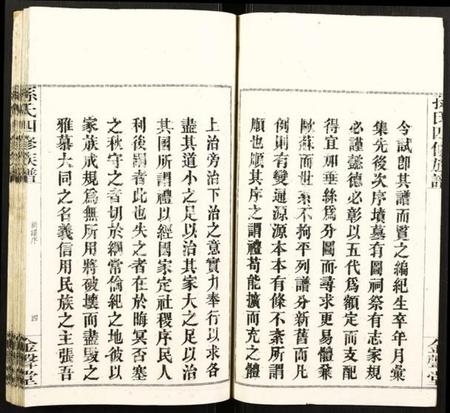 孫氏四修族譜
金聲堂
今試卽其譜而質之編紀生卒年月彙
集先後次序墳墓有圖祠祭有志家規
必謹懿德必彰以五代爲額定而支配
得宜如垂絲爲分圖而尋求更易體兼
歐蘇而世系不拘平列譜分新舊而凡
例則有變通源源本本有條不紊所謂
順也順其序之謂禮苟能擴而充之體
上治旁治下治之意實力奉行以求各
盡其道小之足以治其家大之足以治
其國所謂禮以經國家定社稷序民人
利後嗣者此也失之者在於晦冥否塞
之秋守之者切於綱常倫紀之地彼以
家族成規爲無所用將破壞而盡廢之
雅慕大同之名義信用民族之主張吾
孫氏四修族譜
新譜序
四
金聲堂